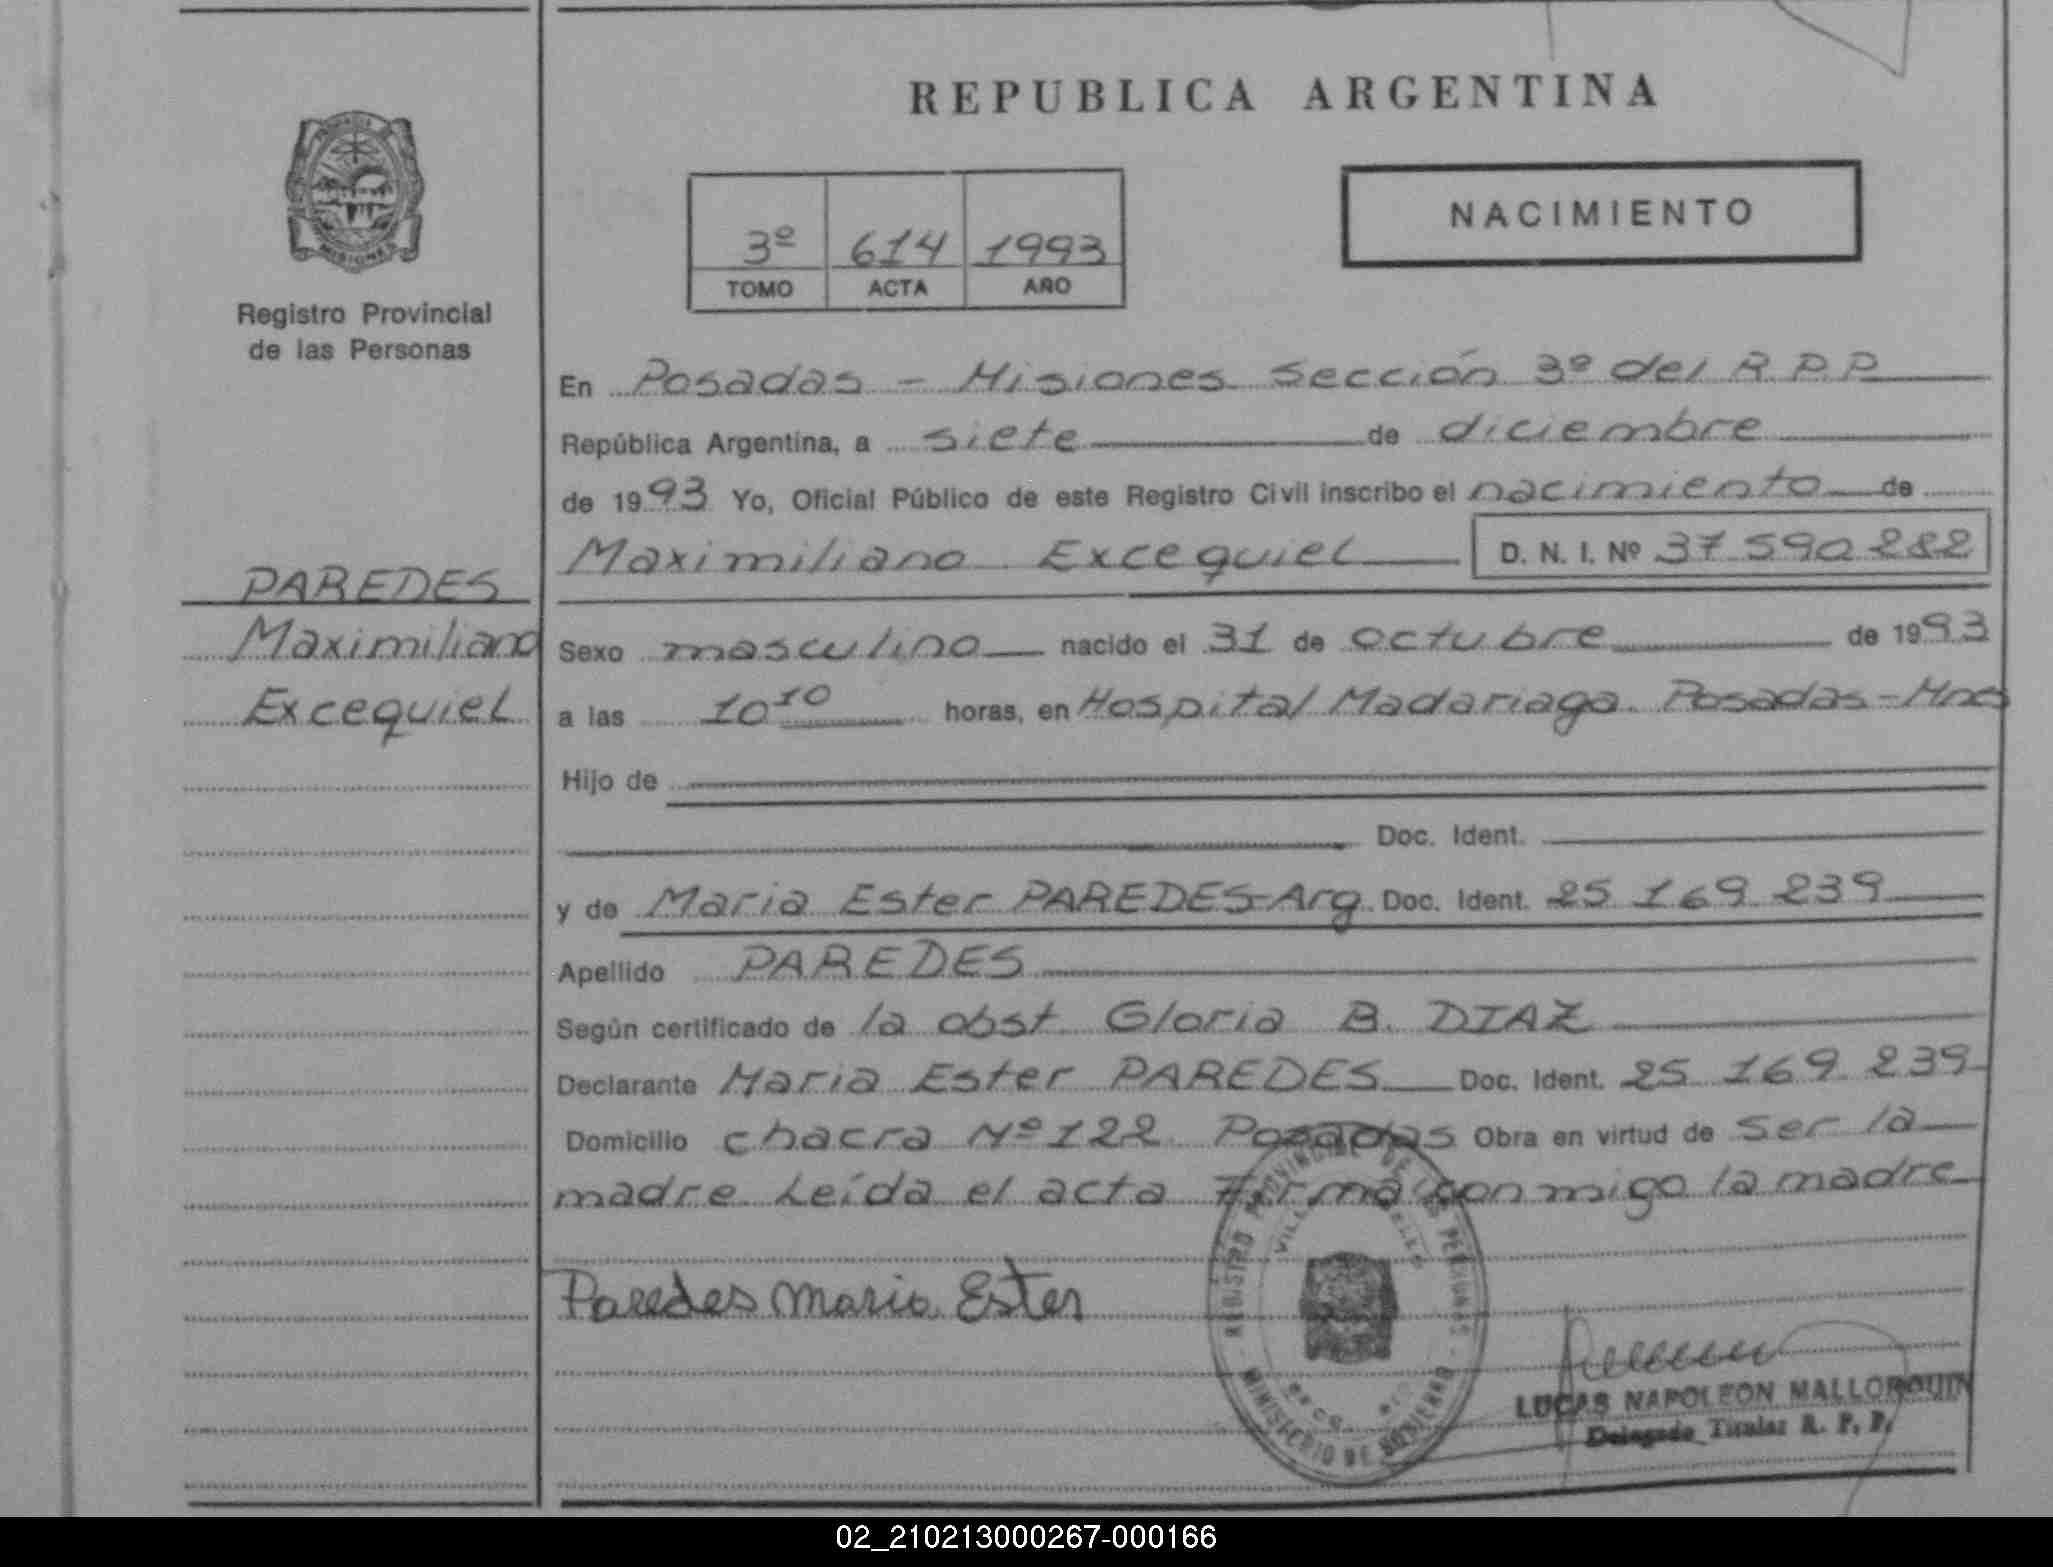 REPUBLICA ARGENTINA
MISIONES
Registro Provincial
de las Personas
3º 614 1993
TOMO ACTA AÑO
NACIMIENTO
En Posadas - Misiones Sección 3º del R.P.P
República Argentina, a siete de diciembre
de 1993 Yo, Oficial Público de este Registro Civil inscribo el nacimiento de
Maximiliano Excequiel D. N. I. Nº 37 590 282
PAREDES
Maximiliano
Excequiel
Sexo masculino nacido el 31 de octubre de 1993
a las 10 10 horas, en Hospital Madariaga. Posadas-Mnes
Hijo de
Doc. Ident.
y de Maria Ester PAREDES-Arg. Doc. Ident. 25 169 239
Apellido PAREDES
Según certificado de la obst. Gloria B. DIAZ
Declarante Maria Ester PAREDES Doc. Ident. 25 169 239
Domicilio chacra Nº 122 Posadas Obra en virtud de ser la
madre Leída el acta Firma conmigo la madre
Paredes Maria Ester
REGISTRO PROVINCIAL DE LAS PERSONAS
MINISTERIO DE GOBIERNO
LUCAS NAPOLEON MALLORQUIN
Delegado Titular R. P. P.
02_210213000267-000166